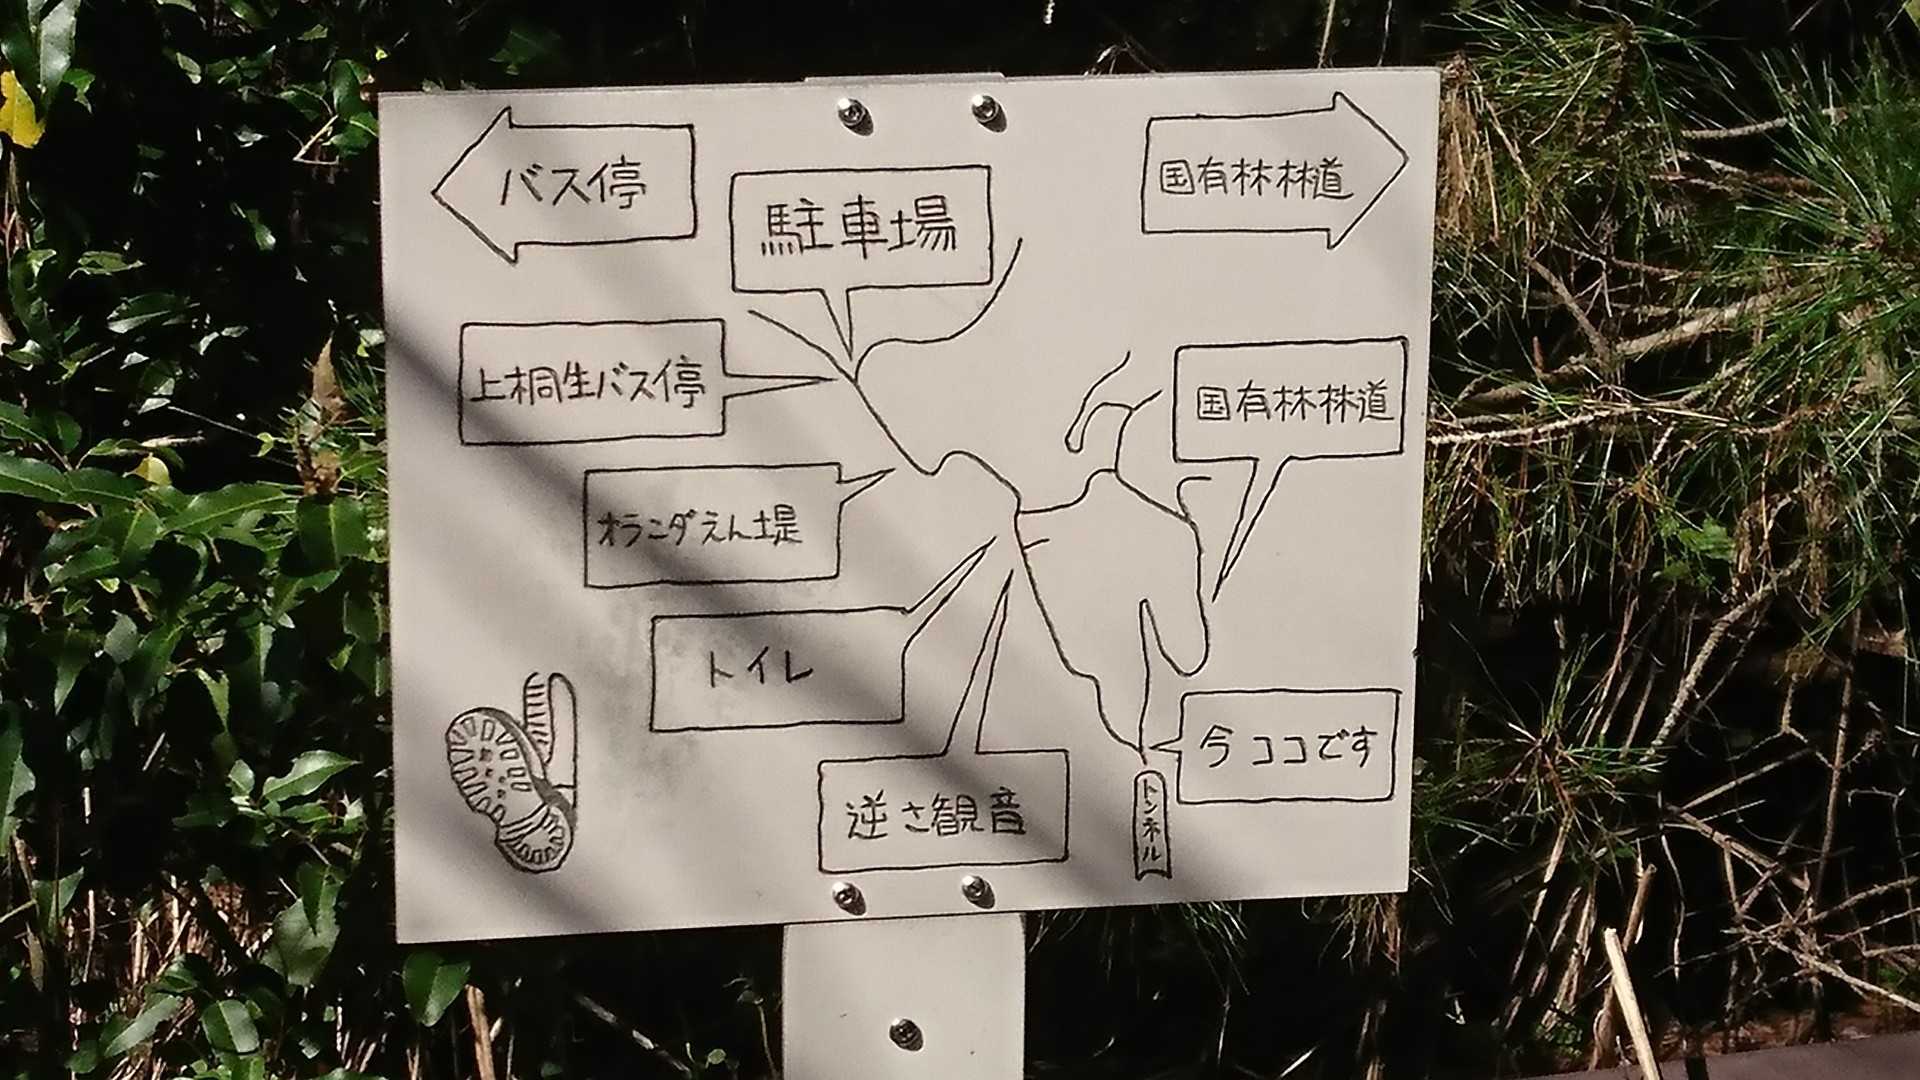 バス停
国有林林道
駐車場
上桐生バス停
国有林林道
オランダえん堤
トイレ
今ココです
逆さ観音
トンネル